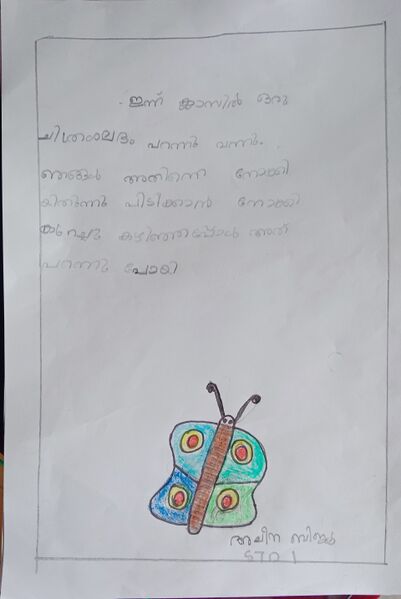 ഇന്ന് ക്ലാസിൽ ഒരു
ചിത്രശലഭം പറന്നു വന്നു.
ഞങ്ങൾ അതിനെ നോക്കി
യിരുന്നു പിടിക്കാൻ നോക്കി
കുറച്ചു കഴിഞ്ഞപ്പോൾ അത്
പറന്നു പോയി
അലീന ബിജു
STD 1